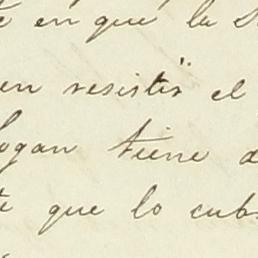 en que la
en resistir el
hogan tiene
que lo cub